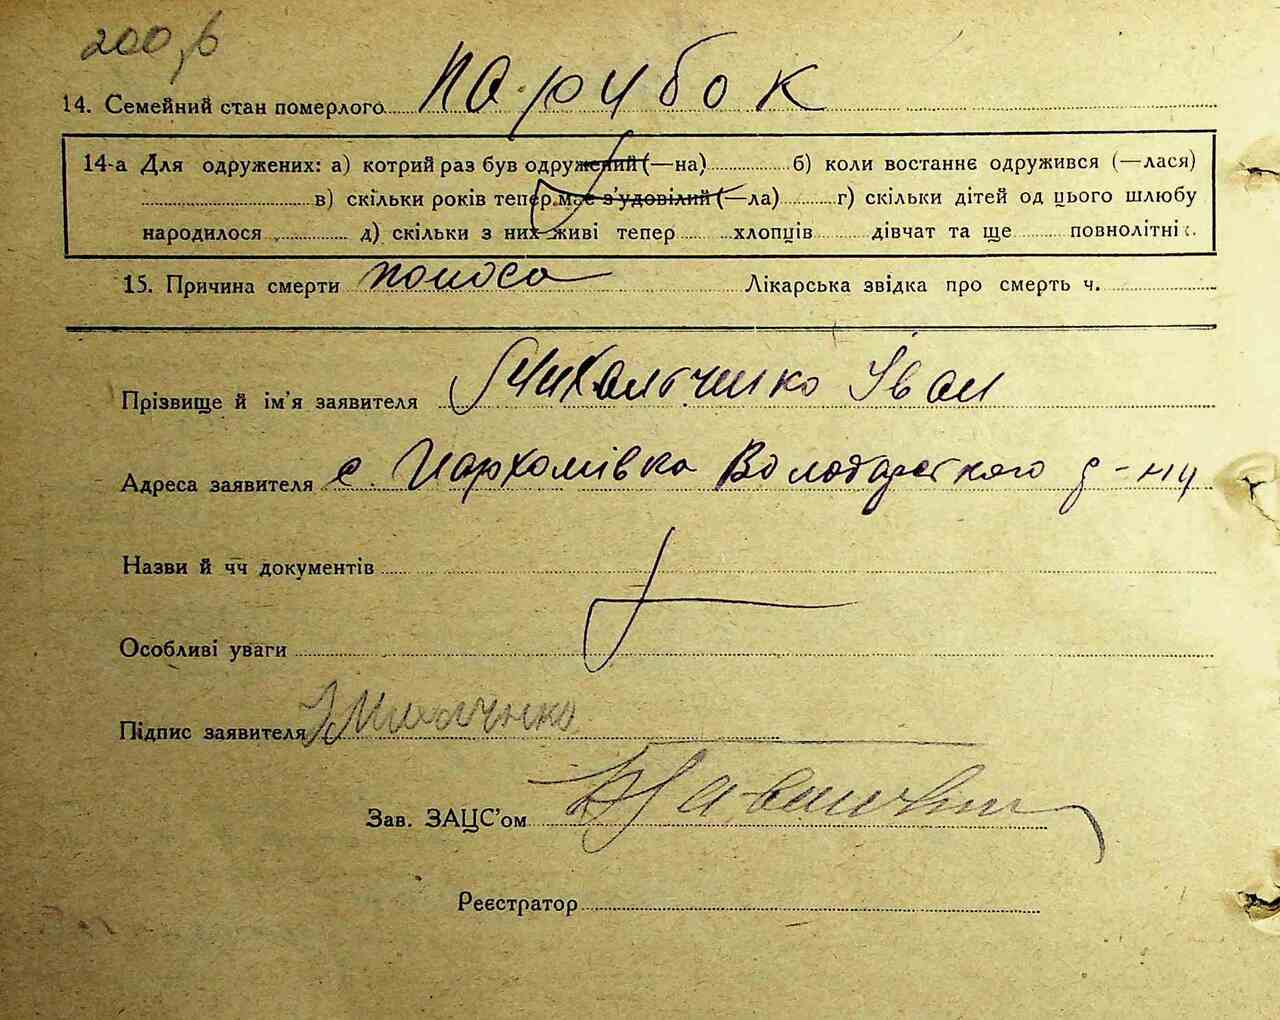 200 в
14. Семейний стан померлого парубок
14-а Для одружених: а) котрий раз був одружений (—на) б) коли востаннє одружився (—лася)
в) скільки років тепер має з'удовілий (—ла) г) скільки дітей од цього шлюбу
народилося д) скільки з них живі тепер хлопців дівчат та ще повнолітніх.
15. Причина смерти поноса Лікарська звідка про смерть ч.
Прізвище й ім'я заявителя Михальченко Іван
Адреса заявителя с. Пархомівка Володарського р-ну
Назви й чч документів
Особливі уваги
Підпис заявителя
Зав. ЗАЦС'ом
Реєстратор